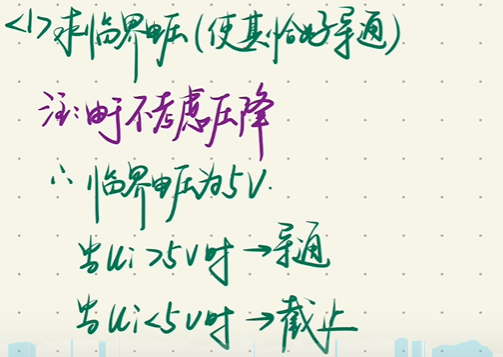 <1>求临界电压(使其恰好导通)
注:由于不考虑压降
∴临界电压为5V.
当Ui>5V时→导通
当Ui<5V时→截止